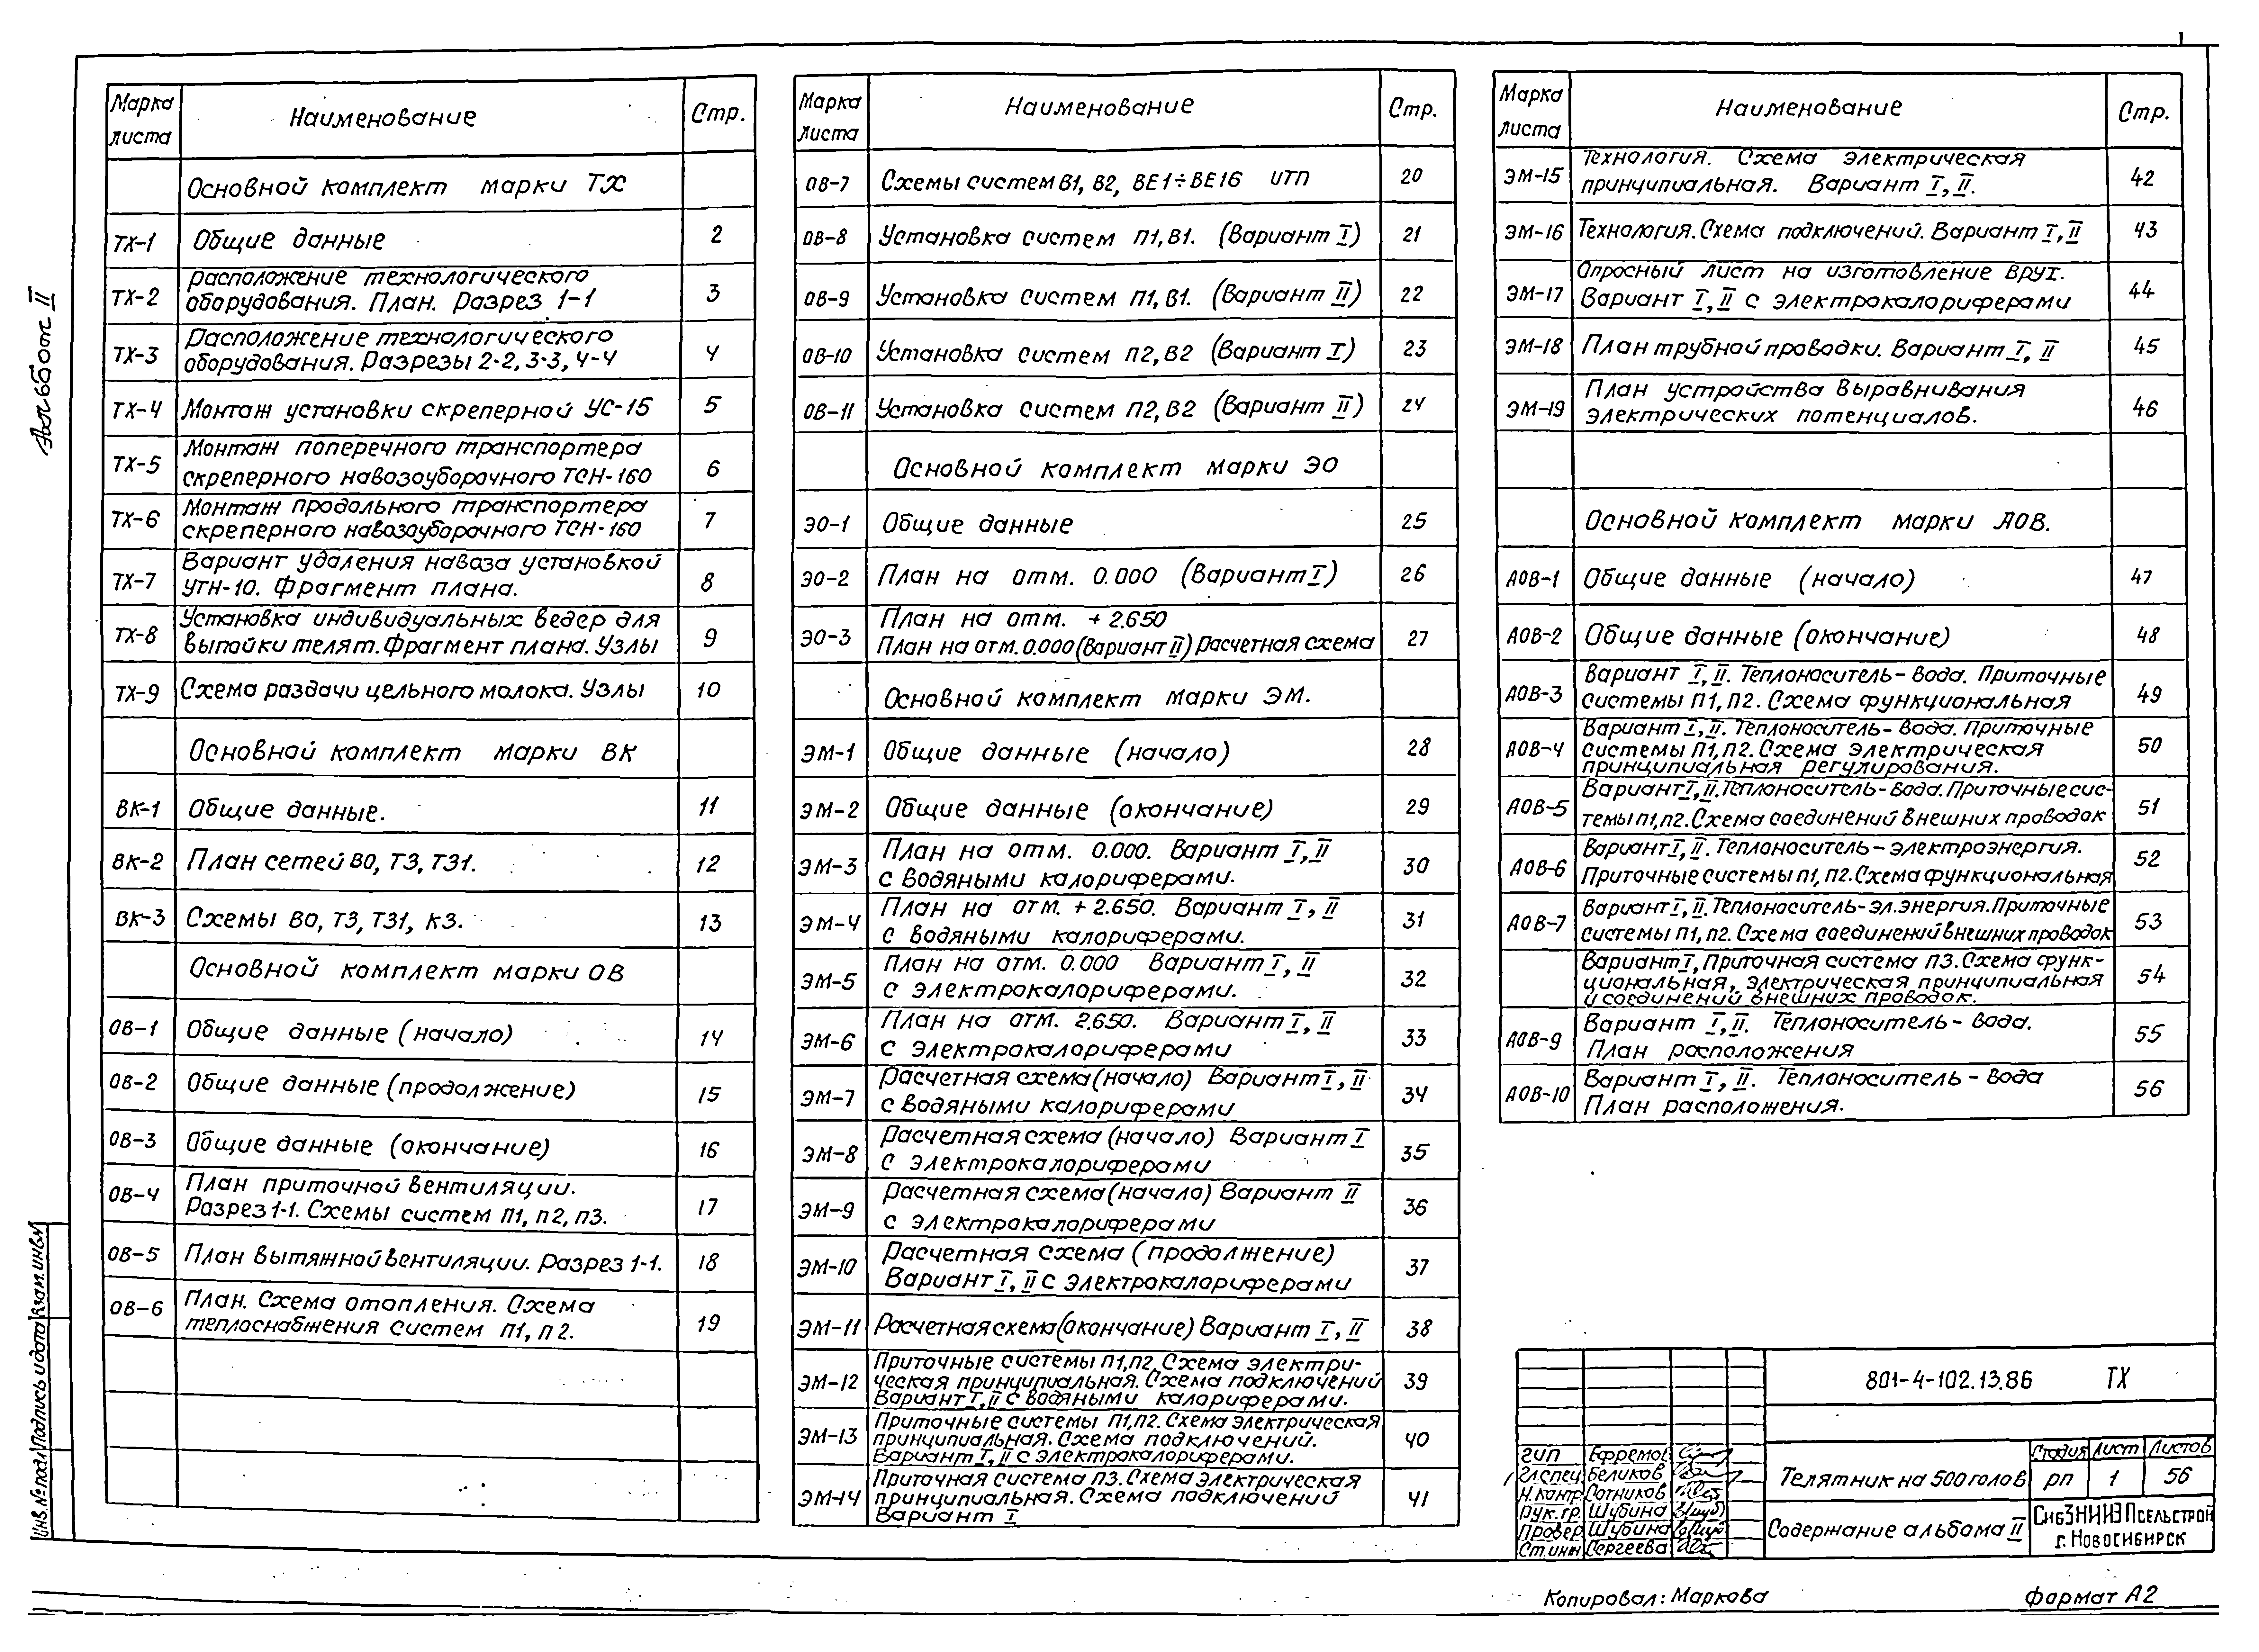 Альбом II
Марка листа Наименование Стр.
Основной комплект марки ТХ
ТХ-1 Общие данные 2
ТХ-2 Расположение технологического
оборудования. План. Разрез 1-1 3
ТХ-3 Расположение технологического
оборудования. Разрезы 2-2, 3-3, 4-4 4
ТХ-4 Монтаж установки скреперной УС-15 5
ТХ-5 Монтаж поперечного транспортера
скреперного навозоуборочного ТСН-160 6
ТХ-6 Монтаж продольного транспортера
скреперного навозоуборочного ТСН-160 7
ТХ-7 Вариант удаления навоза установкой
УТН-10. Фрагмент плана. 8
ТХ-8 Установка индивидуальных ведер для
выпойки телят. Фрагмент плана. Узлы 9
ТХ-9 Схема раздачи цельного молока. Узлы 10
Основной комплект марки ВК
ВК-1 Общие данные. 11
ВК-2 План сетей В0, Т3, Т31. 12
ВК-3 Схемы В0, Т3, Т31, К3. 13
Основной комплект марки ОВ
ОВ-1 Общие данные (начало) 14
ОВ-2 Общие данные (продолжение) 15
ОВ-3 Общие данные (окончание) 16
ОВ-4 План приточной вентиляции.
Разрез 1-1. Схемы систем П1, П2, П3. 17
ОВ-5 План вытяжной вентиляции. Разрез 1-1. 18
ОВ-6 План. Схема отопления. Схема
теплоснабжения систем П1, П2. 19
Марка листа Наименование Стр.
ОВ-7 Схемы систем В1, В2, ВЕ1÷ВЕ16 УТП 20
ОВ-8 Установка систем П1, В1. (Вариант I) 21
ОВ-9 Установка систем П1, В1. (Вариант II) 22
ОВ-10 Установка систем П2, В2 (Вариант I) 23
ОВ-11 Установка систем П2, В2 (Вариант II) 24
Основной комплект марки ЭО
ЭО-1 Общие данные 25
ЭО-2 План на отм. 0.000 (Вариант I) 26
ЭО-3 План на отм. + 2.650
План на отм. 0.000 (Вариант II) Расчетная схема 27
Основной комплект марки ЭМ.
ЭМ-1 Общие данные (начало) 28
ЭМ-2 Общие данные (окончание) 29
ЭМ-3 План на отм. 0.000. Вариант I, II
с водяными калориферами. 30
ЭМ-4 План на отм. + 2.650. Вариант I, II
с водяными калориферами. 31
ЭМ-5 План на отм. 0.000 Вариант I, II
с электрокалориферами. 32
ЭМ-6 План на отм. 2.650. Вариант I, II
с электрокалориферами 33
ЭМ-7 Расчетная схема (начало) Вариант I, II
с водяными калориферами 34
ЭМ-8 Расчетная схема (начало) Вариант I
с электрокалориферами 35
ЭМ-9 Расчетная схема (начало) Вариант II
с электрокалориферами 36
ЭМ-10 Расчетная схема (продолжение)
Вариант I, II с электрокалориферами 37
ЭМ-11 Расчетная схема (окончание) Вариант I, II 38
ЭМ-12 Приточные системы П1, П2. Схема электри-
ческая принципиальная. Схема подключений
Вариант I, II с водяными калориферами. 39
ЭМ-13 Приточные системы П1, П2. Схема электрическая
принципиальная. Схема подключений.
Вариант I, II с электрокалориферами. 40
ЭМ-14 Приточная система П3. Схема электрическая
принципиальная. Схема подключений
Вариант I 41
Марка листа Наименование Стр.
ЭМ-15 Технология. Схема электрическая
принципиальная. Вариант I, II. 42
ЭМ-16 Технология. Схема подключений. Вариант I, II 43
ЭМ-17 Опросный лист на изготовление ВРУ1.
Вариант I, II с электрокалориферами 44
ЭМ-18 План трубной проводки. Вариант I, II 45
ЭМ-19 План устройства выравнивания
электрических потенциалов. 46
Основной комплект марки АОВ.
АОВ-1 Общие данные (начало) 47
АОВ-2 Общие данные (окончание) 48
АОВ-3 Вариант I, II. Теплоноситель - вода. Приточные
системы П1, П2. Схема функциональная 49
АОВ-4 Вариант I, II. Теплоноситель - вода. Приточные
системы П1, П2. Схема электрическая
принципиальная регулирования. 50
АОВ-5 Вариант I, II. Теплоноситель - вода. Приточные сис-
темы П1, П2. Схема соединений внешних проводок 51
АОВ-6 Вариант I, II. Теплоноситель - электроэнергия.
Приточные системы П1, П2. Схема функциональная 52
АОВ-7 Вариант I, II. Теплоноситель - эл.энергия. Приточные
системы П1, П2. Схема соединений внешних проводок 53
Вариант I, Приточная система П3. Схема функ-
циональная, электрическая принципиальная
и соединений внешних проводок. 54
АОВ-9 Вариант I, II. Теплоноситель - вода.
План расположения 55
АОВ-10 Вариант I, II. Теплоноситель - вода
План расположения. 56
801-4-102.13.86 ТХ
ГИП Ефремов
Гл.спец. Беликов
Н.контр Сотников
Рук.гр. Шубина
Провер Шубина
Ст.инж. Сергеева
Телятник на 500 голов
Стадия Лист Листов
РП 1 56
Содержание альбома II
СибЗНИИЭПсельстрой
г. Новосибирск
Инв.№ подл Подпись и дата Взам.инв.№
Копировал: Маркова
Формат А2